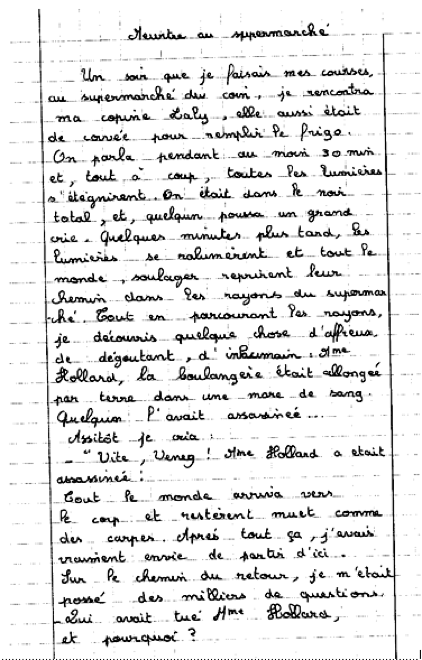 Meurtre au supermarché
Un soir que je faisais mes courses,
au supermarché du coin, je rencontra
ma copine Laly, elle aussi était
de corvée pour remplir le frigo.
On parla pendant au moin 30 min
et, tout à coup, toutes les lumières
s'éteignirent. On était dans le noir
total, et, quelqun poussa un grand
crie. Quelques minutes plus tard, les
lumières se ralumèrent et tout le
monde, soulager reprirent leur
chemin dans les rayons du supermar
-ché. Tout en parcourant les rayons,
je découvris quelque chose d'affreux,
de dégoutant, d'inhumain : Mme
Hollard, la boulangerie était allongée
par terre dans une mare de sang.
Quelqun l'avait assassineé...
Assitôt je cria :
- "Vite, Veneg ! Mme Hollard a était
assassineé !
Tout le monde arriva vers
le corp et restèrent muet comme
des carpes. Après tout ça, j'avais
vraiment envie de partir d'ici.
Sur le chemin du retour, je m'était
possé des milliers de questions.
- Qui avait tué Mme Hollard,
et pourquoi ?